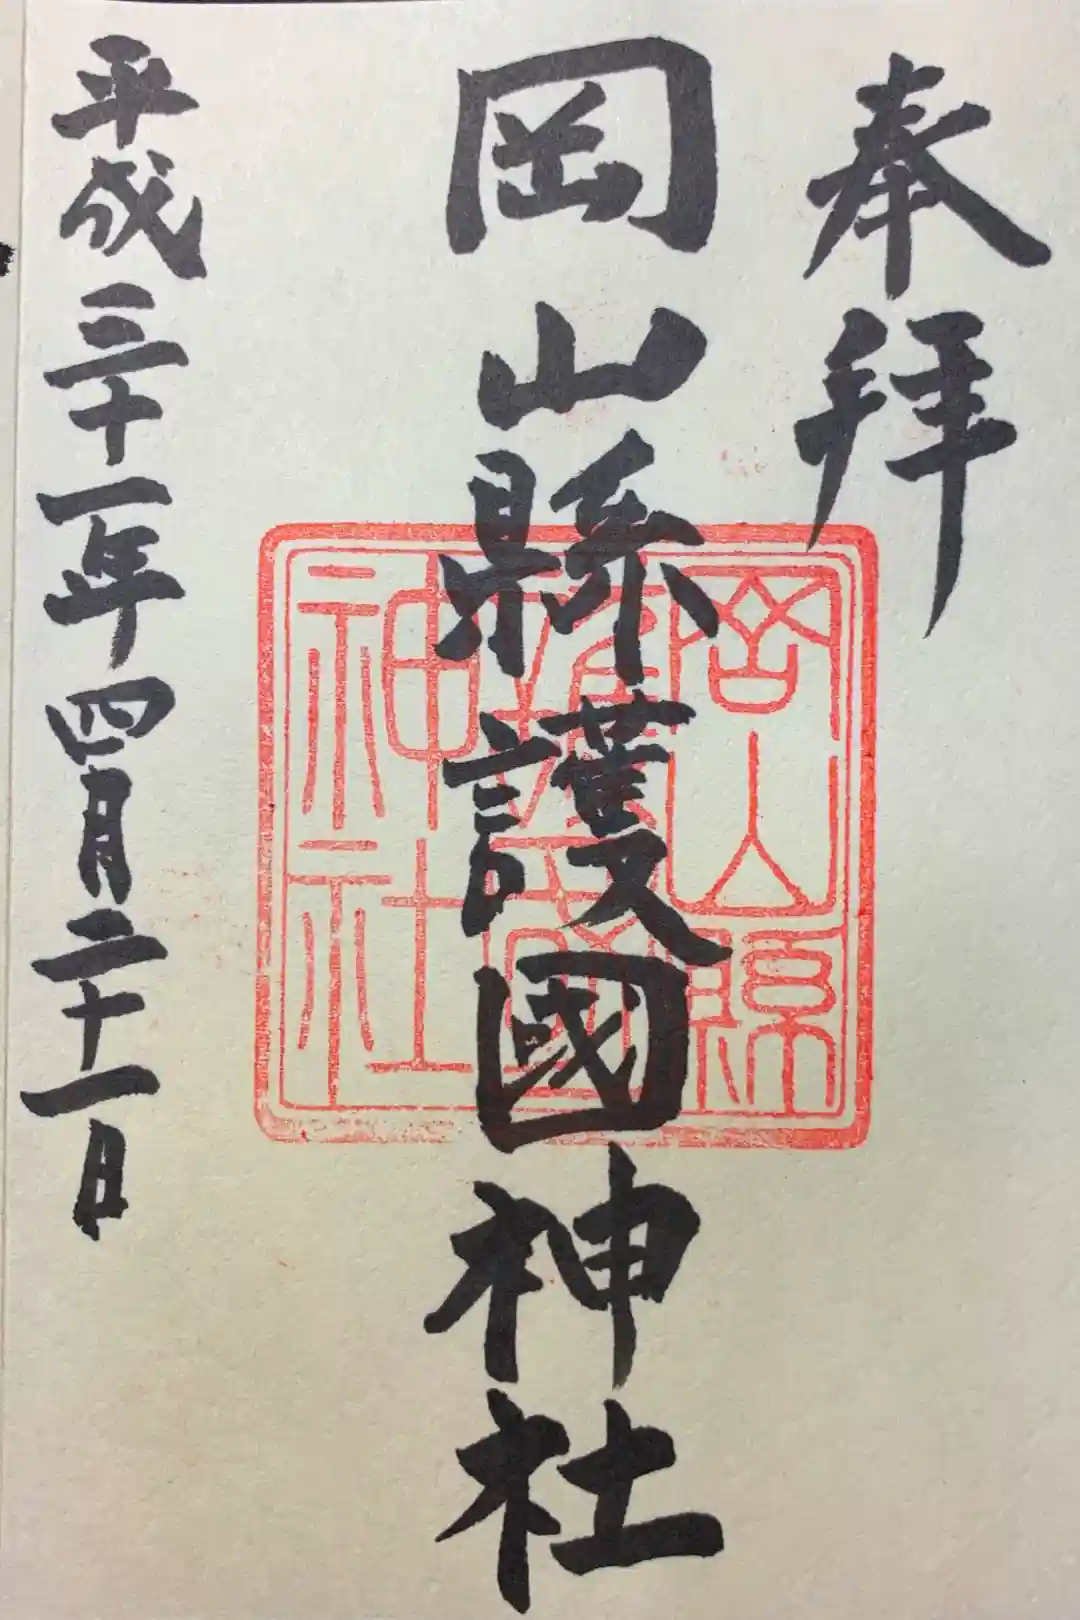 奉拝
岡山縣護國神社
岡山縣護國神社
平成三十一年四月二十一日